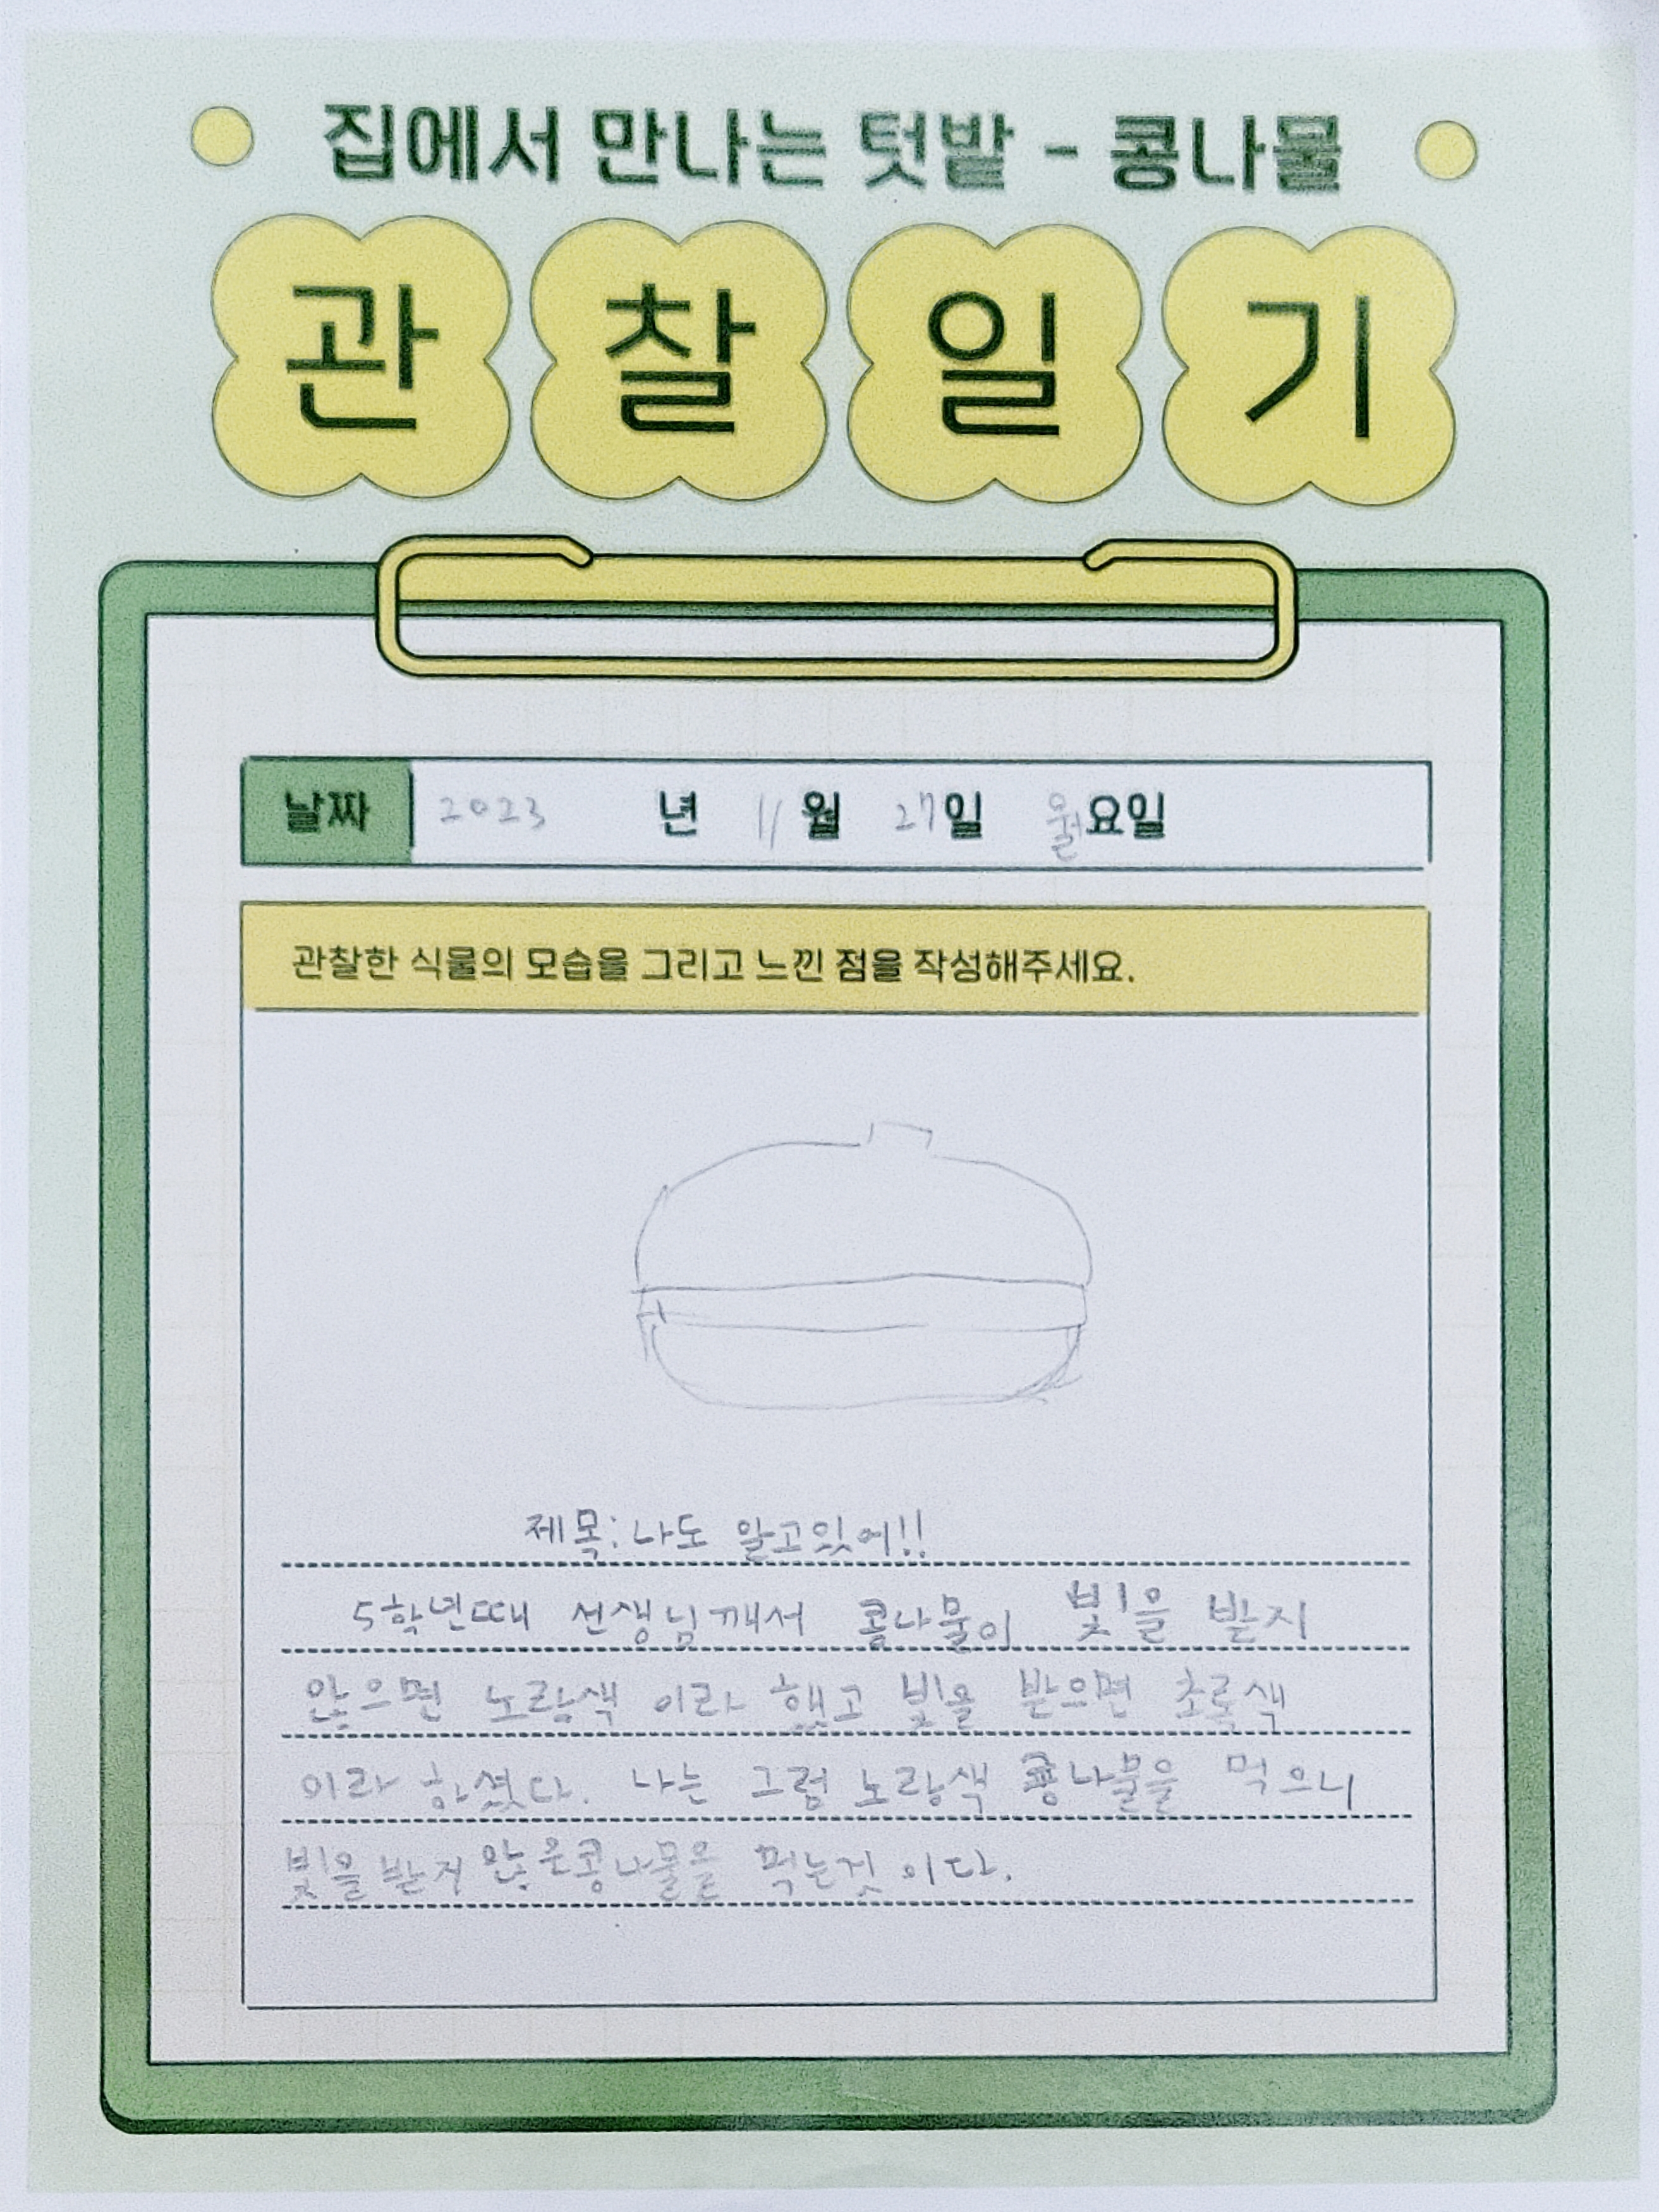 집에서 만나는 텃밭 - 콩나물
관찰일기
날짜 2023 년 11 월 27일 월요일
관찰한 식물의 모습을 그리고 느낀 점을 작성해주세요.
제목: 나도 알고있어!!
5학년때 선생님께서 콩나물이 빛을 받지
않으면 노랑색 이라 했고 빛을 받으면 초록색
이라 하셨다. 나는 그럼 노랑색 콩나물을 먹으니
빛을 받지 않은콩나물을 먹는것 이다.